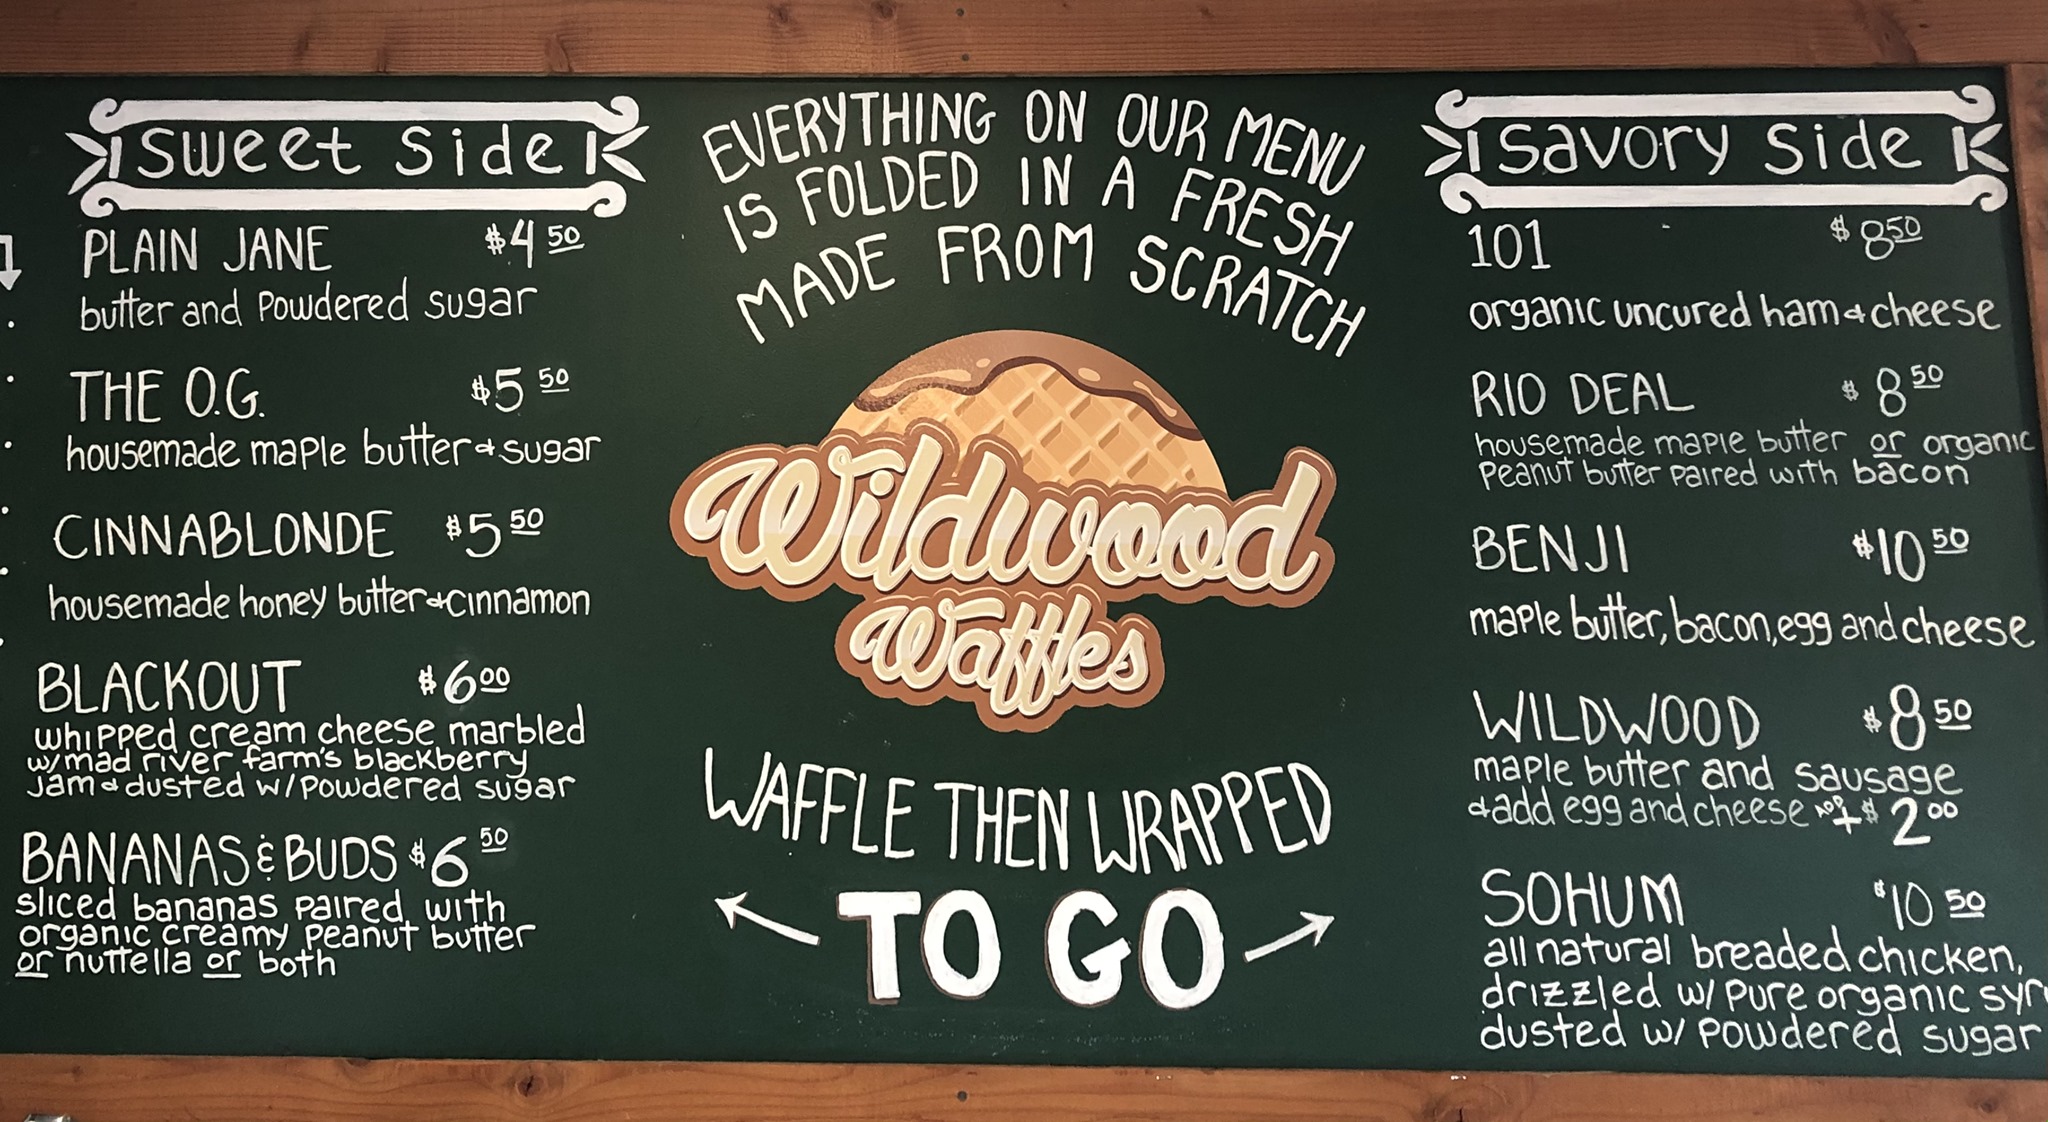 sweet side
PLAIN JANE $4 50
butter and Powdered sugar
THE O.G. $5 50
housemade maple butter & sugar
CINNABLONDE $5 50
housemade honey butter & cinnamon
BLACKOUT $6 00
whipped cream cheese marbled
w/ mad river farm's blackberry
Jam & dusted w/ Powdered sugar
BANANAS & BUDS $6 50
sliced bananas paired with
organic creamy peanut butter
or nuttella or both
EVERYTHING ON OUR MENU
IS FOLDED IN A FRESH
MADE FROM SCRATCH
Wildwood
Waffles
WAFFLE THEN WRAPPED
TO GO
savory side
101 $8 50
organic uncured ham & cheese
RIO DEAL $8 50
housemade maple butter or organic
Peanut butter paired with bacon
BENJI $10 50
maple butter, bacon, egg and cheese
WILDWOOD $8 50
maple butter and sausage
& add egg and cheese for + $2 00
SOHUM $10 50
all natural breaded chicken,
drizzled w/ pure organic syr
dusted w/ powdered sugar